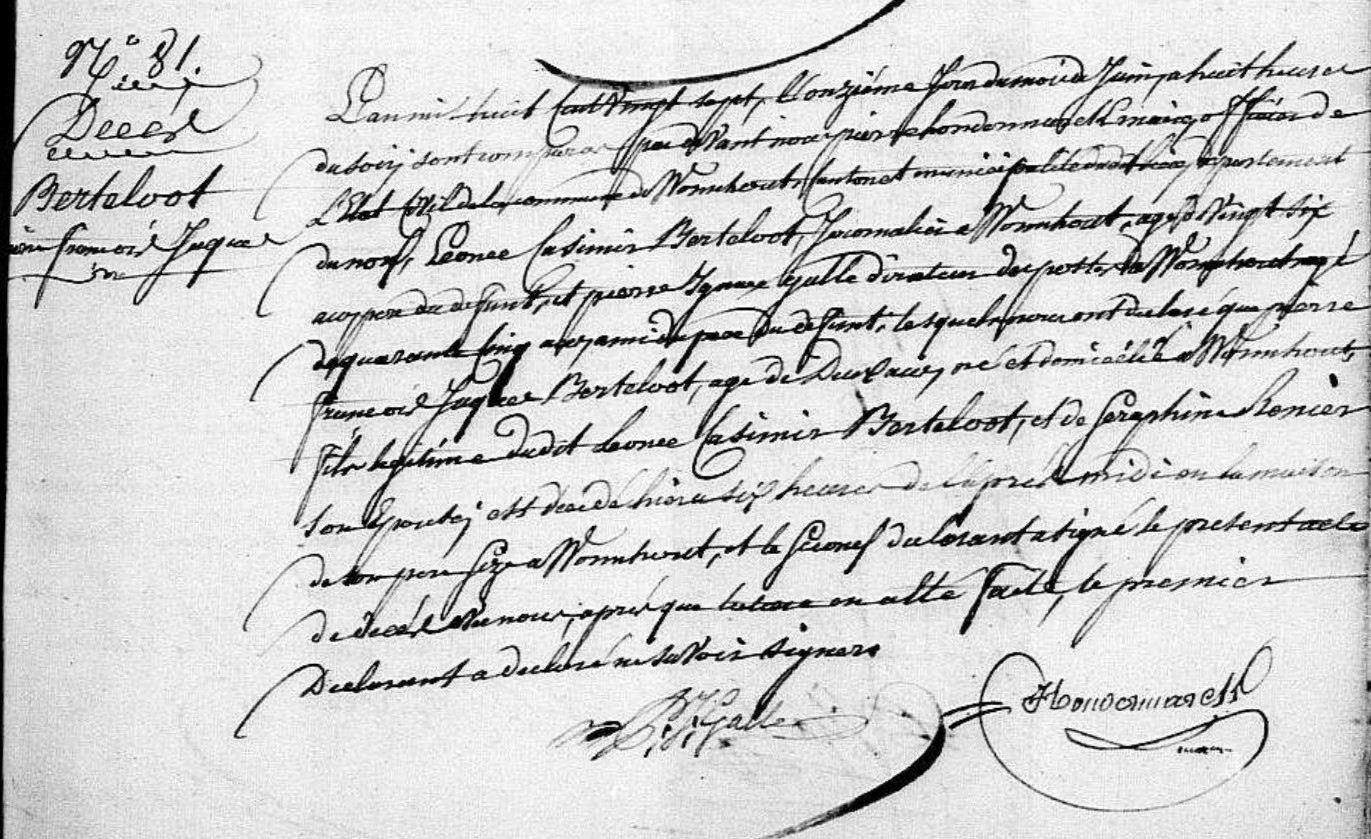 N.o 81.
Décès
Berteloot
françois Jaques
L'an mil huit Cent Vingt sept, l'onzième Jour du mois de Juin, a huit heures
du soir, sont comparus par devant nous pierre hondermarck maire, officier de
l'Etat Civil de la commune de Wormhout, Canton et municipalité dudit lieu, departement
du nord, Leonce Casimir Berteloot, Journalier a Wormhout, agé de Vingt six
ans pere du defunt, et pierre Ignace galle directeur des postes de Wormhout agé
de quarante Cinq ans, ami du pere du defunt, lesquels nous ont declaré que pierre
françois Jaques Berteloot, age de Deux ans, né et domicilié a Wormhout,
fils legitime dudit Leonce Casimir Berteloot, et de Seraphine Renier
son Epouse, est decedé hier a six heures de l'après midi en la maison
de son pere size a Wormhout, et le second declarant a signé le present acte
de décès avec nous, après que lecture en a été faite, le premier
Declarant a declaré ne savoir signer.
P. I. Galle
Hondermarck